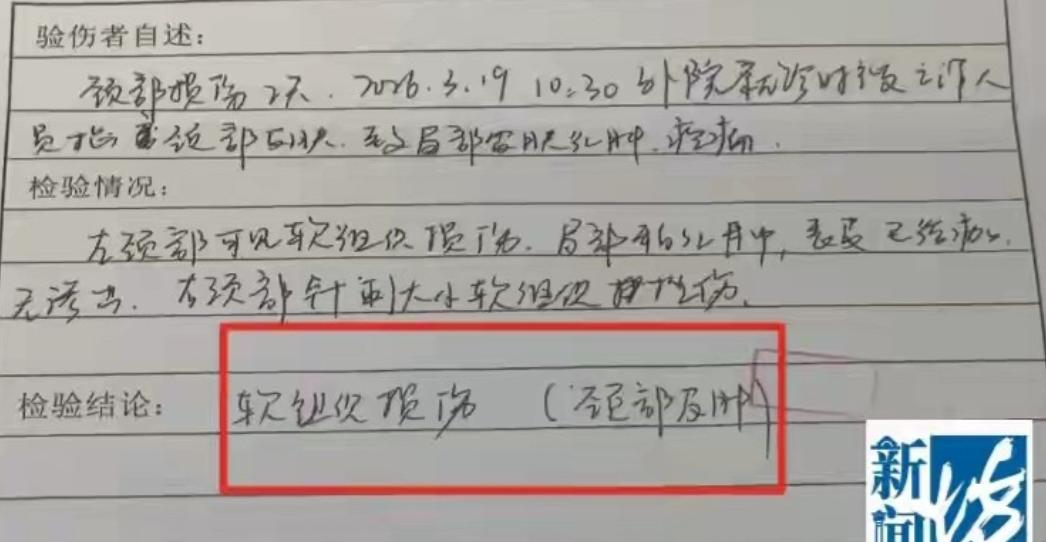 验伤者自述：
颈部损伤2天．2026.3.19 10:30 外院就诊时被工作人
员 颈部 ．致局部皮肤红肿．疼痛．
检验情况：
左颈部可见软组织损伤．局部稍红肿，表皮已结痂．
无渗出．右颈部针刺大小软组织 伤．
检验结论： 软组织损伤 （颈部皮肤）
新闻坊